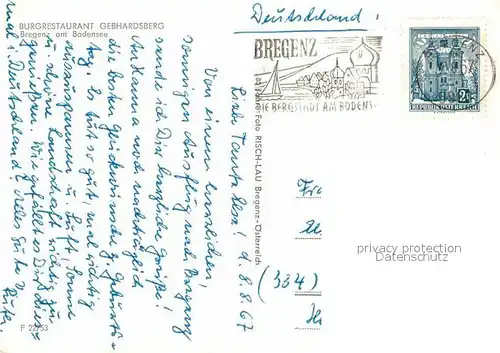 BURGRESTAURANT GEBHARDSBERG
Bregenz am Bodensee
Deutschland!
BREGENZ
DIE BERGSTADT AM BODENS
REPUBLIK ÖSTERREICH
2
Foto RISCH-LAU Bregenz-Österreich
Liebe Tante Lene! d. 8.8.67
Von einem herrlichen,
sonnigen Ausflug nach Bregenz
sende ich Dir herzliche Grüße!
Auch noch nachträglich
die besten Glückwünsche z. Geburts-
tag. Es tut so gut, mal richtig
auszuspannen u. Luft, Sonne
u. Landschaft richtig zu
genießen. Wie gefällt es Dir dies-
mal i. Deutschland? Alles Gute
F 22/53
Fr
(384)
privacy protection
Datenschutz